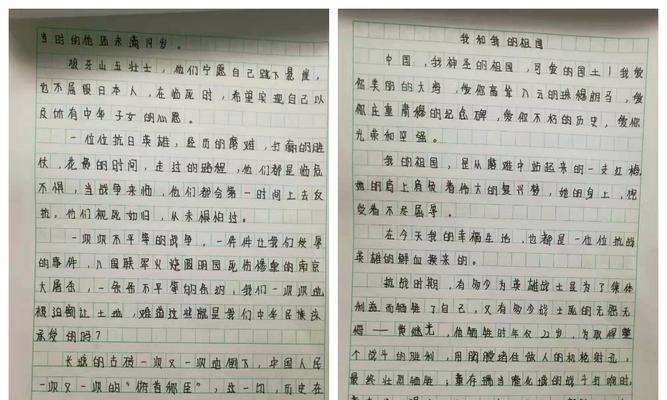 当时的他还未满19岁。
狼牙山五壮士，他们宁愿自己跳下悬崖，
也不屈服日本人，在临死时，希望实现自己以
及所有中华子女的心愿。
一位位抗日英雄，经历的磨难，打响的胜
仗，花费的时间，走过的路程，他们都是临危
不惧，当战争来临，他们都会第一时间上去反
抗，他们视死如归，从未惧怕过。
一次次不平等的战争，一件件让我们屈辱
的事件，八国联军火烧圆明园死伤惨重的南京
大屠杀，一条条不平等的条约，我们一次次地
被迫割让土地，难道这些就是我们中华民族该
承受的吗？
长城的古砖一次又一次地倒下，中国人民
一次又一次的“俯首称臣”，这一切，历史在
我和我的祖国
中国，我神圣的祖国，可爱的国土！我爱
你美丽的大海，爱你高耸入云的珠穆朗玛，爱
你庄重肃穆的纪念碑，爱你不朽的历史，爱你
光荣和坚强。
我的祖国，是从磨难中站起来的一支红梅，
她的肩上肩负着伟大的复兴梦，她的身上，视
受着不尽屈辱。
在今天我的幸福生活，也都是一位位抗战
英雄的鲜血换来的。
抗战时期，有多少为英雄战士是为了集体
利益而牺牲了自己，又有多少战士死的无怨无
悔——黄继光，他牺牲时年仅22岁，为取得整
个战斗的胜利，用胸膛堵住敌人的机枪射孔，
最终壮烈牺牲；董存瑞当隆化城的战斗打响时，